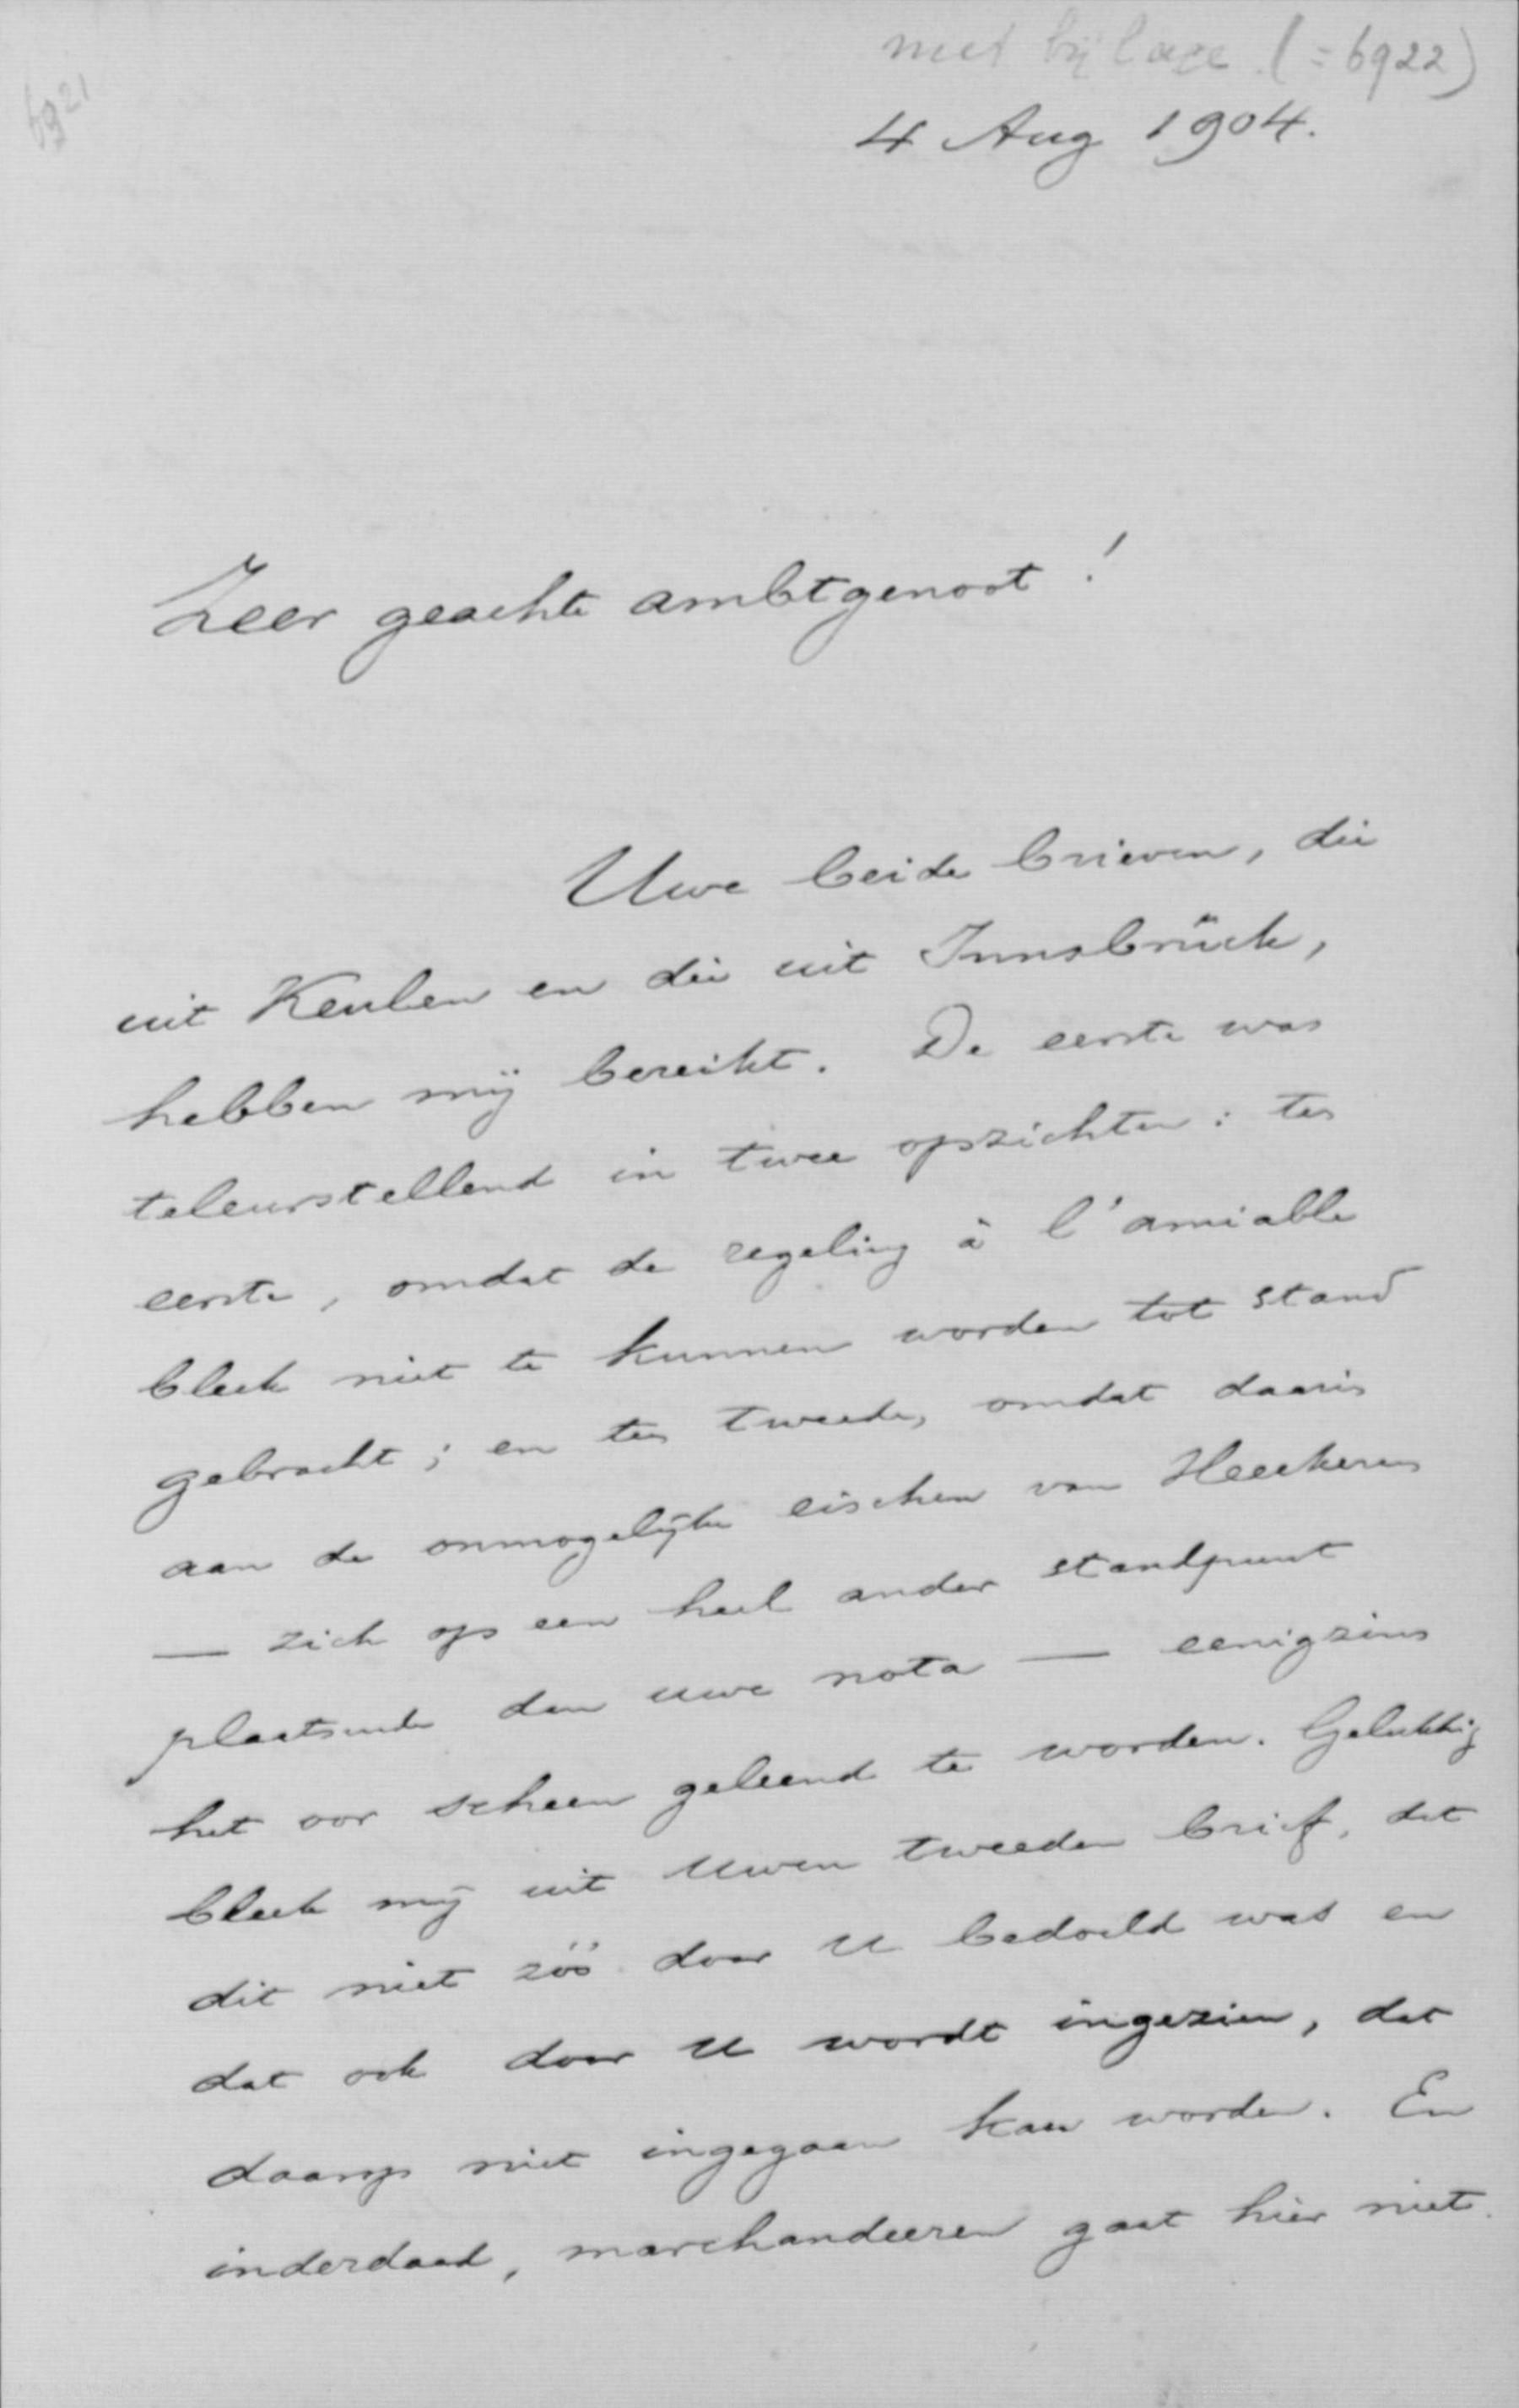 met bijlage (= 6922)
6921
4 Aug 1904.
Zeer geachte ambtgenoot!
Uwe beide brieven, die
uit Keulen en die uit Innsbrück,
hebben mij bereikt. De eerste was
teleurstellend in twee opzichten: ten
eerste, omdat de regeling à l'amiable
bleek niet te kunnen worden tot stand
gebracht; en ten tweede, omdat daarin
aan de onmogelijke eischen van Heeckerens
— zich op een heel ander standpunt
plaatsende dan uwe nota — eenigzins
het oor scheen geleend te worden. Gelukkig
bleek mij uit Uwen tweeden brief, dat
dit niet zóó door U bedoeld was en
dat ook door U wordt ingezien, dat
daarop niet ingegaan kan worden. En
inderdaad, marchandeeren gaat hier niet.